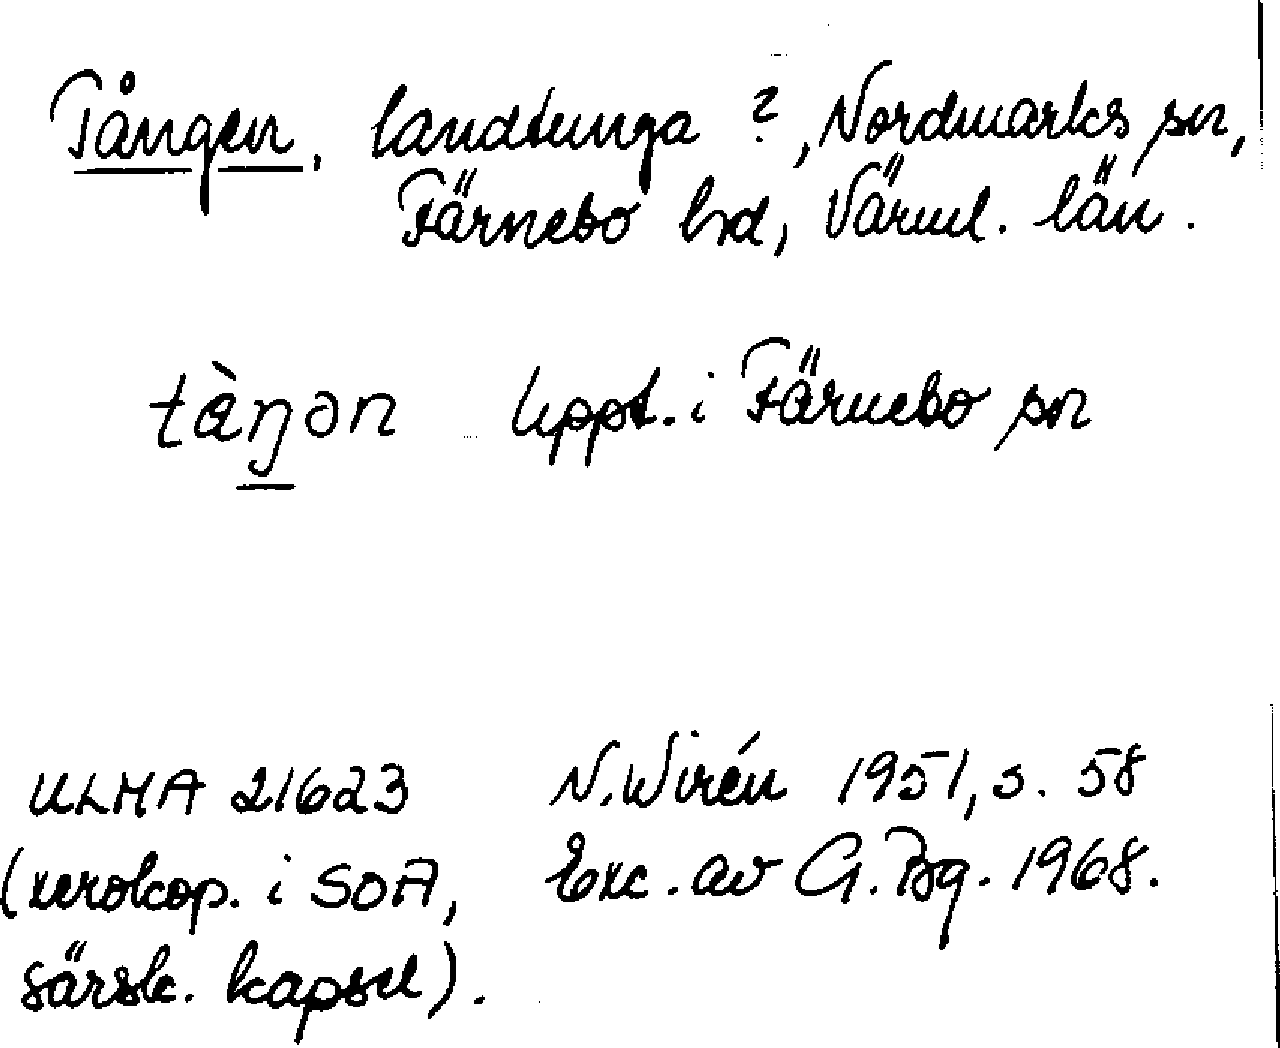 Tången, landtunga ?, Nordmarks sn,
Färnebo hd, Värml. län.
tàŋən uppt. i Färnebo sn
ULMA 21623 N. Wirén 1951, s. 58
(xerokop. i SOA, Exc. av G. Bg. 1968.
särsk. kapsel).